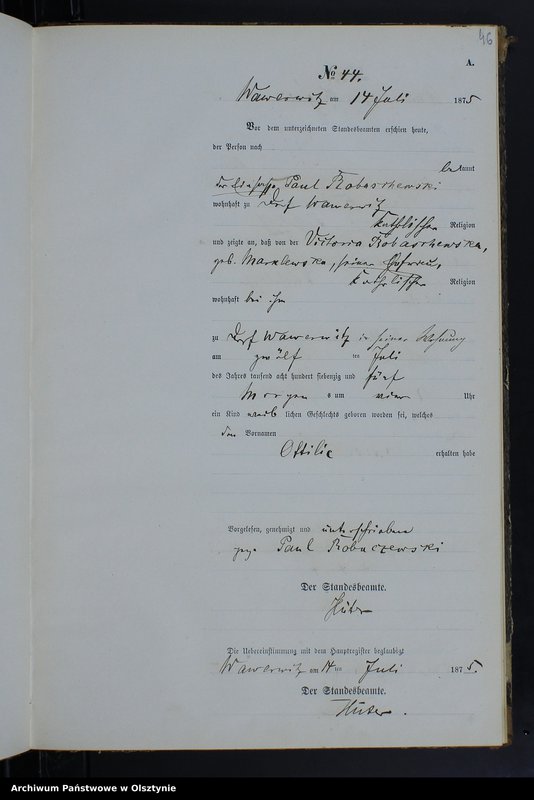 46
A.
No 44.
Wawerwitz am 14 Juli 1875
Vor dem unterzeichneten Standesbeamten erschien heute,
der Person nach
bekannt
der Paul Robaschewski
wohnhaft zu Dorf Wawerwitz
katholischer Religion
und zeigte an, daß von der Victoria Robaschewska,
geb. Marklewska, seiner Ehefrau,
katholischer Religion
wohnhaft bei ihm
zu Dorf Wawerwitz in seiner Wohnung
am zwölf ten Juli
des Jahres tausend acht hundert siebenzig und fünf
Morgens um vier Uhr
ein Kind weiblichen Geschlechts geboren worden sei, welches
den Vornamen
Ottilie erhalten habe
Vorgelesen, genehmigt und unterschrieben
gez. Paul Robaczewski
Der Standesbeamte.
Hüter
Die Uebereinstimmung mit dem Hauptregister beglaubigt
Wawerwitz am 14 ten Juli 1875.
Der Standesbeamte.
Hüter.
Archiwum Państwowe w Olsztynie